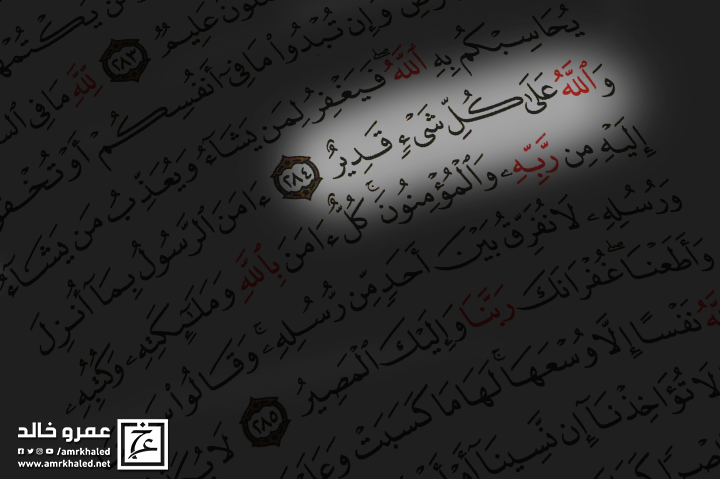 يَكْتُمْهَا
عَلِيمٌ ٢٨٣ لِّلَّهِ مَا فِي
وَإِن تُبْدُوا۟ مَا فِىٓ أَنفُسِكُمْ أَوْ تُخْفُ
يُحَاسِبْكُم بِهِ ٱللَّهُ ۖ فَيَغْفِرُ لِمَن يَشَآءُ وَيُعَذِّبُ مَن يَشَآءُ
وَٱللَّهُ عَلَىٰ كُلِّ شَىْءٍ قَدِيرٌ ٢٨٤ ءَامَنَ ٱلرَّسُولُ بِمَآ أُنزِلَ
إِلَيْهِ مِن رَّبِّهِۦ وَٱلْمُؤْمِنُونَ ۚ كُلٌّ ءَامَنَ بِٱللَّهِ وَمَلَـٰٓئِكَتِهِۦ وَكُتُبِهِۦ
وَرُسُلِهِۦ لَا نُفَرِّقُ بَيْنَ أَحَدٍ مِّن رُّسُلِهِۦ ۚ وَقَالُوا۟
وَأَطَعْنَا ۖ غُفْرَانَكَ رَبَّنَا وَإِلَيْكَ ٱلْمَصِيرُ ٢٨٥ لَا
نَفْسًا إِلَّا وُسْعَهَا ۚ لَهَا مَا كَسَبَتْ
لَا تُؤَاخِذْنَآ إِن نَّسِينَآ
عمرو خالد
/amrkhaled
www.amrkhaled.net